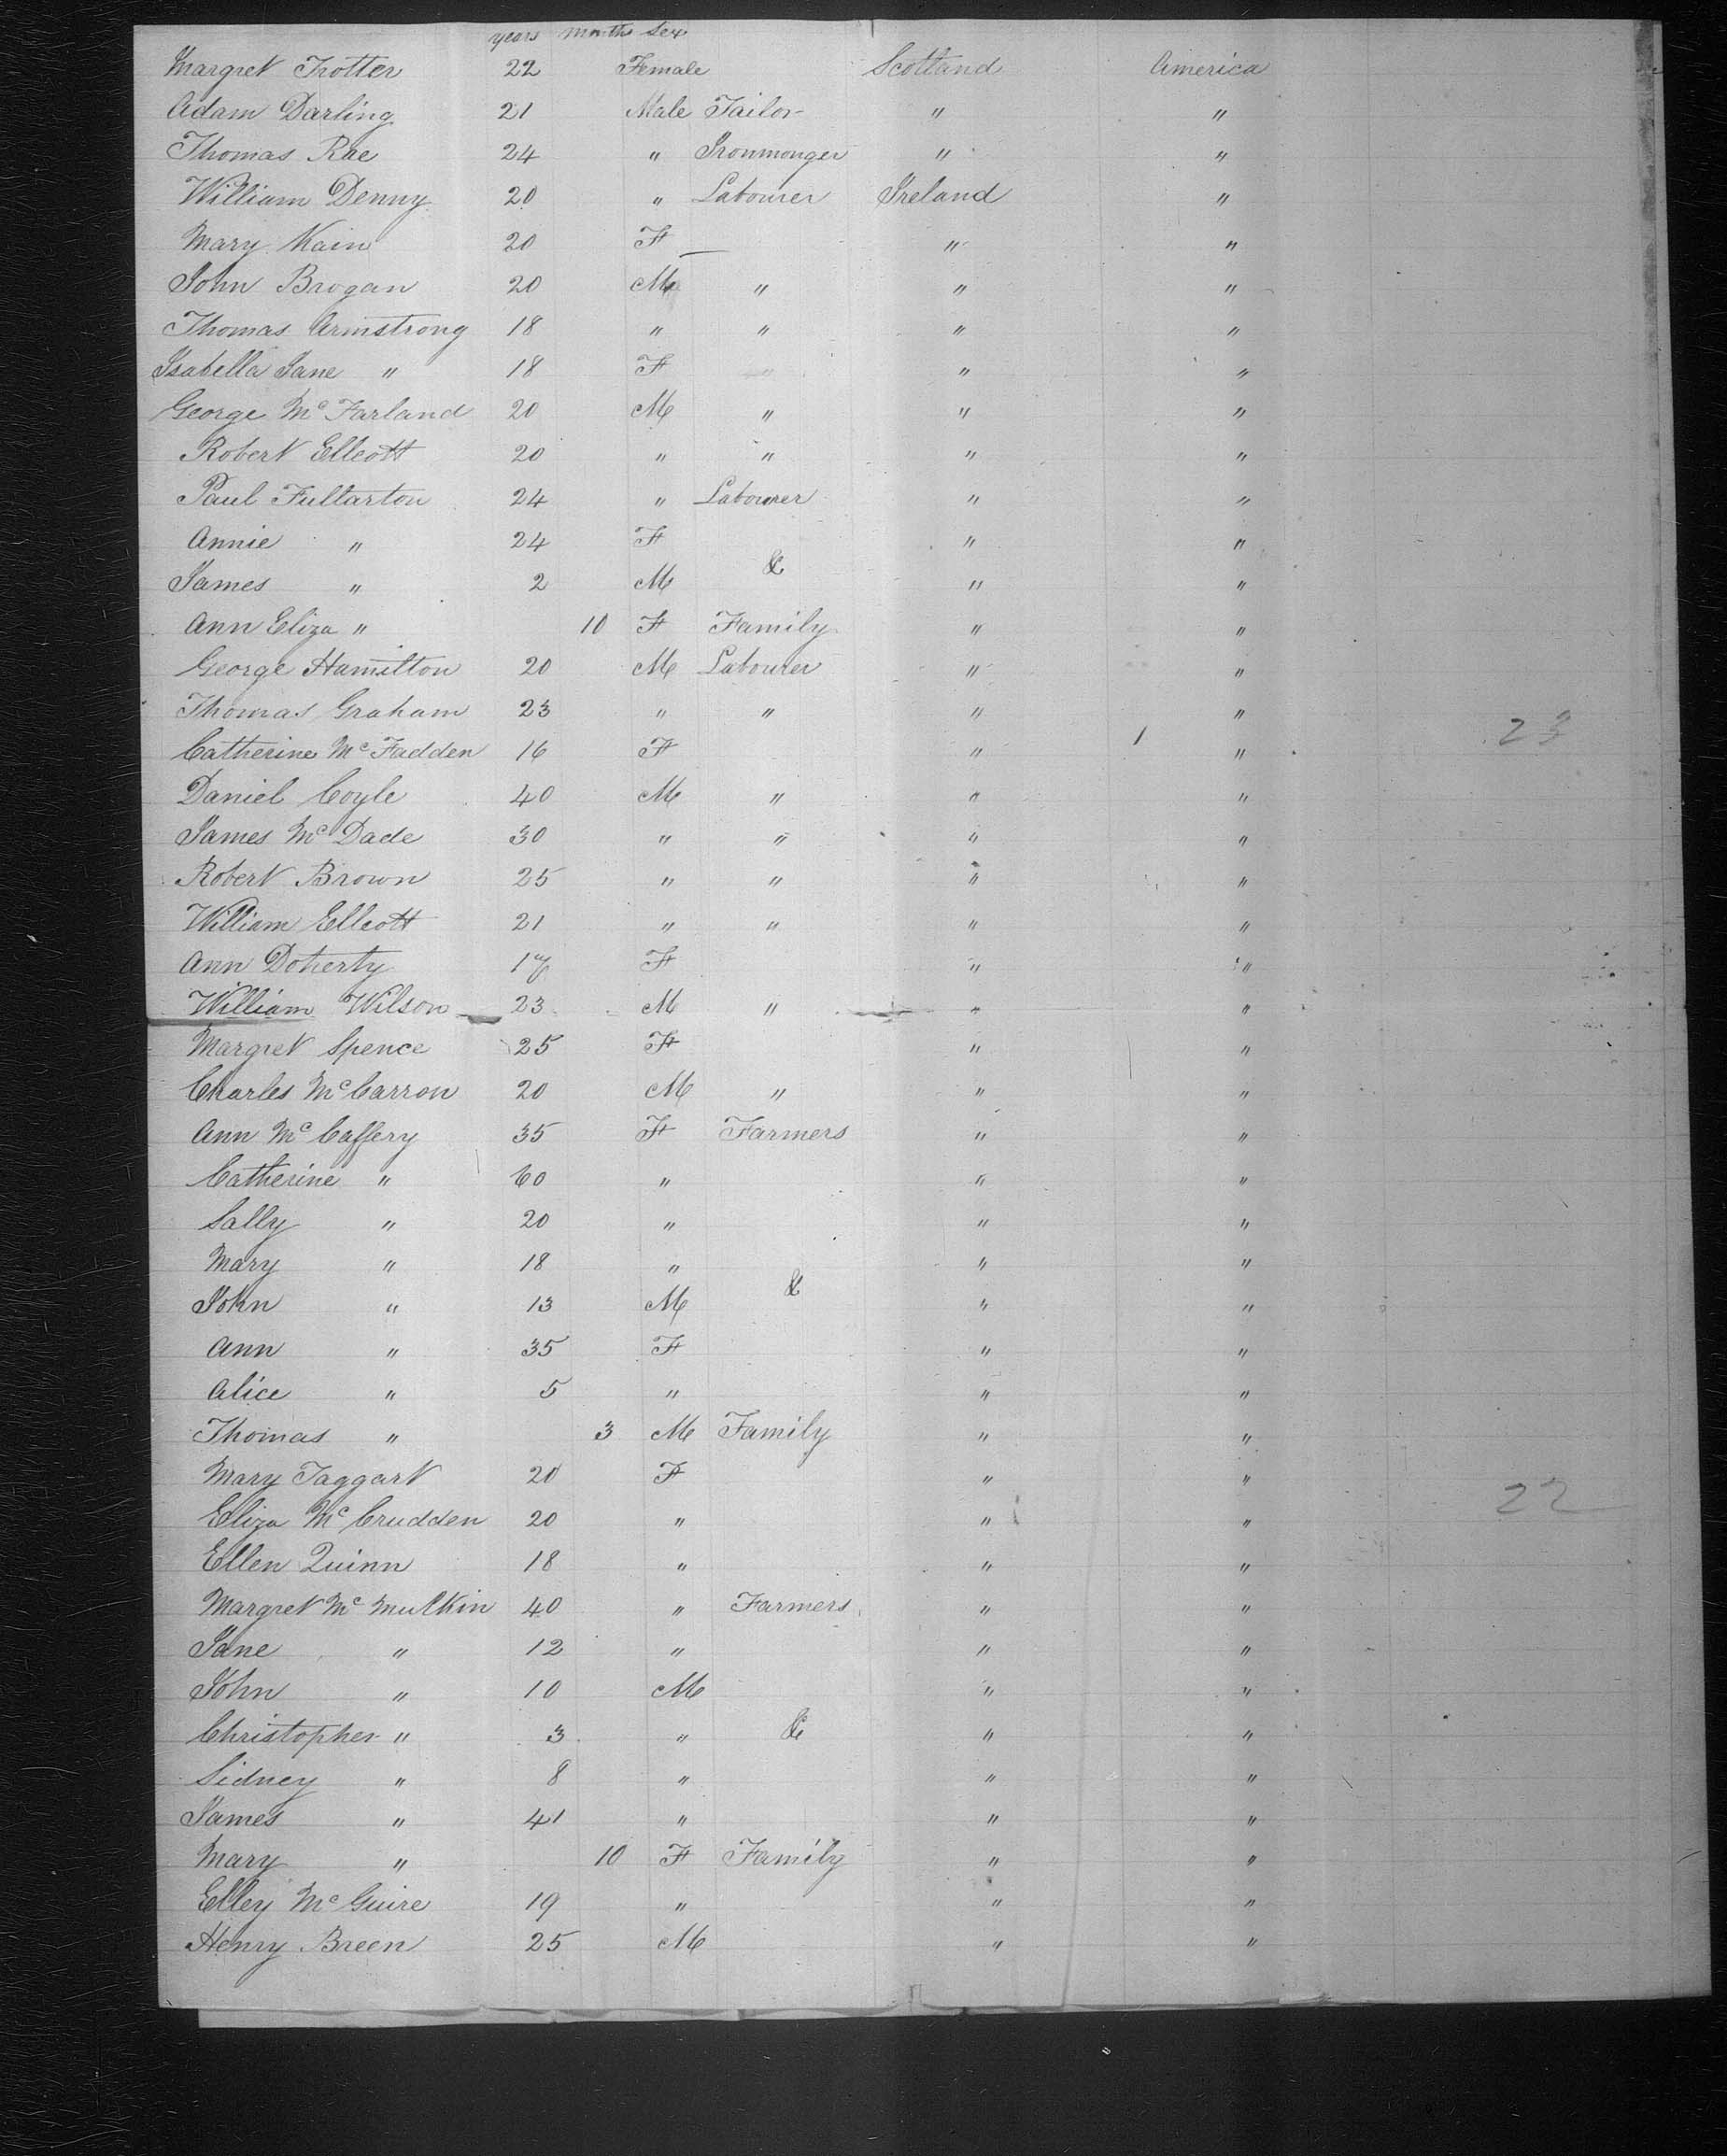 years months Sex
Margret Trotter 22 Female Scotland America
Adam Darling 21 Male Tailor " "
Thomas Rae 24 " Ironmonger " "
William Denny 20 " Labourer Ireland "
Mary Kain 20 F — " "
John Brogan 20 M " " "
Thomas Armstrong 18 " " " "
Isabella Jane " 18 F " " "
George Mc Farland 20 M " " "
Robert Ellcott 20 " " " "
Paul Fullarton 24 " Labourer " "
Annie " 24 F " "
James " 2 M & " "
Ann Eliza " 10 F Family " "
George Hamilton 20 M Labourer " "
Thomas Graham 23 " " " " 23
Catherine Mc Fadden 16 F " "
Daniel Coyle 40 M " " "
James Mc Dade 30 " " " "
Robert Brown 25 " " " "
William Ellcott 21 " " " "
Ann Doherty 17 F " "
William Wilson 23 M " " "
Margret Spence 25 F " "
Charles Mc Carron 20 M " " "
Ann Mc Caffery 35 F Farmers " "
Catherine " 60 " " "
Sally " 20 " " "
Mary " 18 " " "
John " 13 M & " "
Ann " 35 F " "
Alice " 5 " " "
Thomas " 3 M Family " "
Mary Taggart 20 F " "
Eliza Mc Crudden 20 " " " 22
Ellen Quinn 18 " " "
Margret Mc Mulkin 40 " Farmers " "
Jane " 12 " " "
John " 10 M " "
Christopher " 3 " & " "
Sidney " 8 " " "
James " 41 " " "
Mary " 10 F Family " "
Elley Mc Guire 19 " " "
Henry Breen 25 M " "